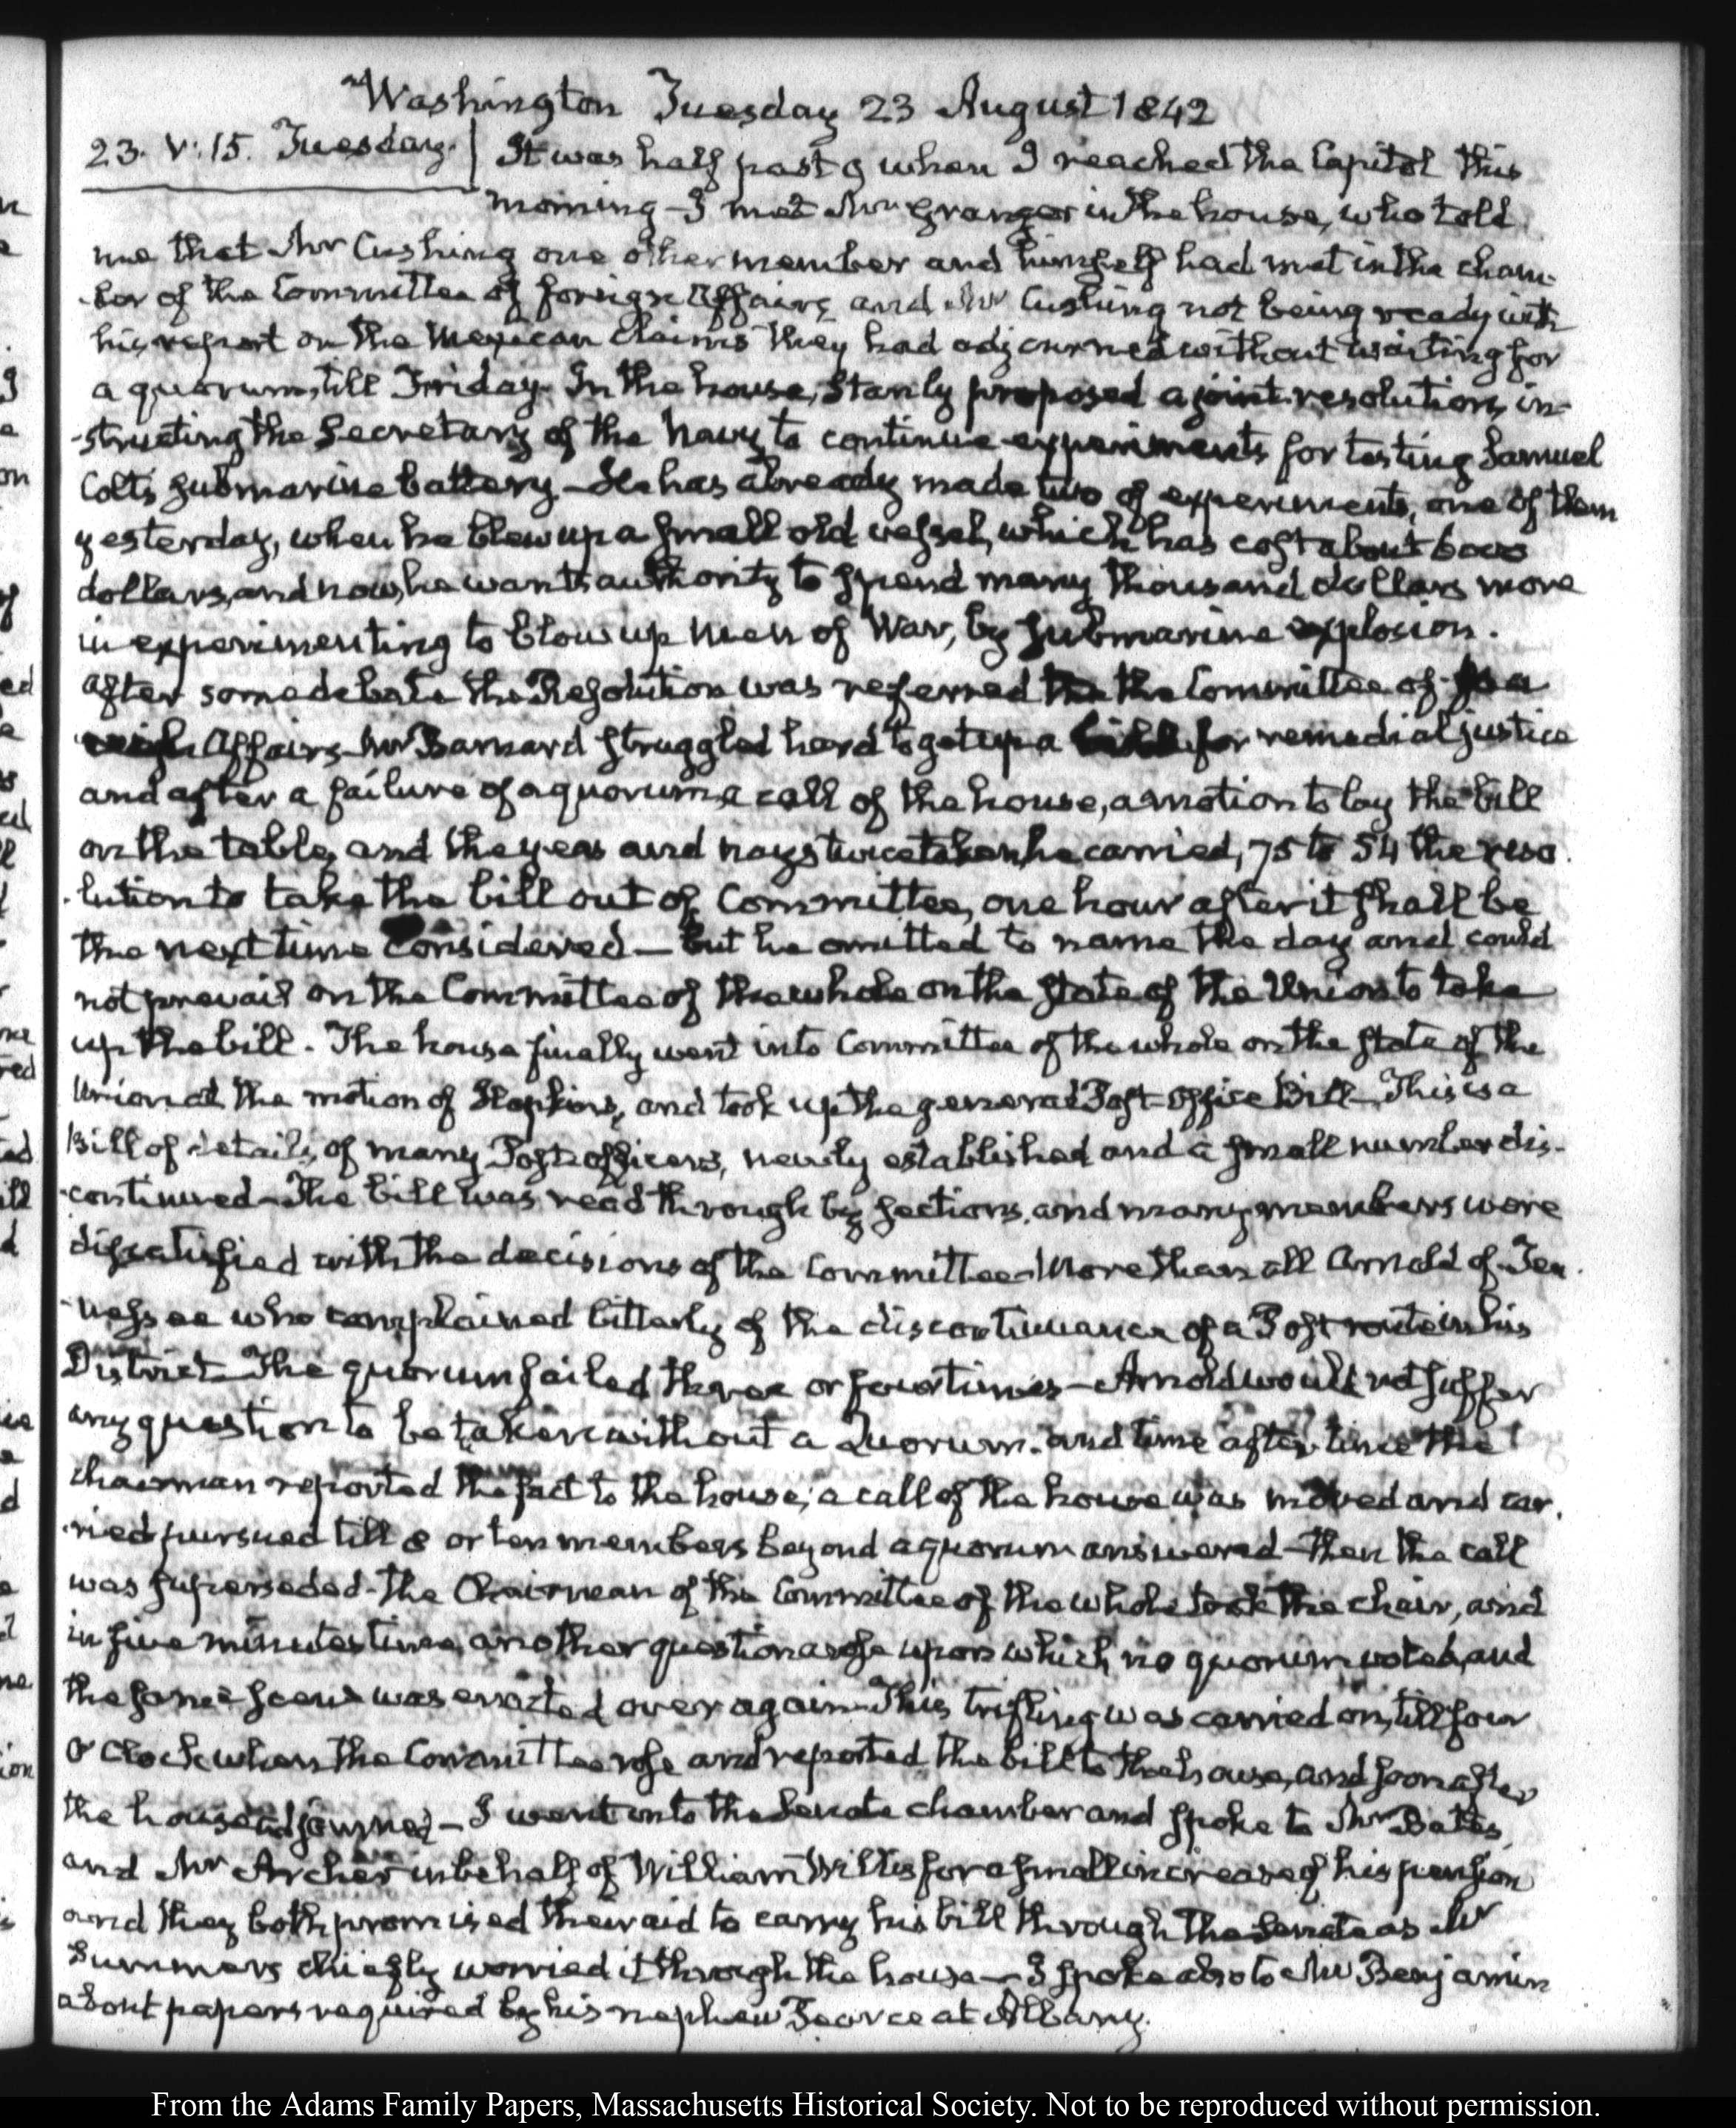 Washington Tuesday 23 August 1842
23. V:15. Tuesday. It was half past 9 when I reached the Capitol this
morning – I met Mr Granger in the house, who told
me that Mr Cushing one other member and himself had met in the cham-
-ber of the Committee of foreign Affairs, and Mr Cushing not being ready with
his report on the Mexican Claims they had adjourned without waiting for
a quorum, till Friday. In the house, Stanly proposed a joint resolution, in-
-structing the Secretary of the Navy to continue experiments for testing Samuel
Colt's submarine battery – He has already made two of experiments, one of them
yesterday, when he blew up a small old vessel, which has cost about
dollars, and now he wants authority to spend many thousand dollars more
in experimenting to blow up Men of War, by submarine explosion.
After some debate the Resolution was referred the Committee of
Affairs – Mr Barnard struggled hard to get up a for remedial justice
and after a failure of a quorum, a call of the house, a motion to lay the bill
on the table, and the yeas and nays twice taken, he carried, 75 to 54 the reso
-lution to take the bill out of Committee, one hour after it shall be
the next time considered – but he omitted to name the day and could
not prevail on the Committee of the whole on the state of the Union to take
up the bill. The house finally went into Committee of the whole on the state of the
Union at the motion of Hopkins, and took up the general Post-Office Bill – This is a
Bill of details, of many Post officers, newly established and a small number dis-
-continued – The bill was read through by sections, and many members were
dissatisfied with the decisions of the Committee – More than all Arnold of Ten
-nessee who complained bitterly of the discontinuance of a Post route in his
District – The quorum failed three or four times – Arnold would not suffer
any question to be taken without a Quorum. and time after time the
chairman reported the fact to the house; a call of the house was moved and car-
-ried pursued till 8 or ten members beyond a quorum answered – then the call
was superseded – the Chairman of the Committee of the whole took the chair, and
in five minutes time, another question arose upon which no quorum voted, and
the same scene was enacted over again – This trifling was carried on, till four
O'Clock when the Committee rose and reported the bill to the house, and soon after
the house adjourned – I went into the Senate chamber and spoke to Mr Bates,
and Mr Archer in behalf of William Willis for a small increase of his pension
and they both promised their aid to carry his bill through the Senate as Mr
Summers chiefly worried it through the house – I spoke also to Mr Benjamin
about papers required by his nephew Pearce at Albany.
From the Adams Family Papers, Massachusetts Historical Society. Not to be reproduced without permission.